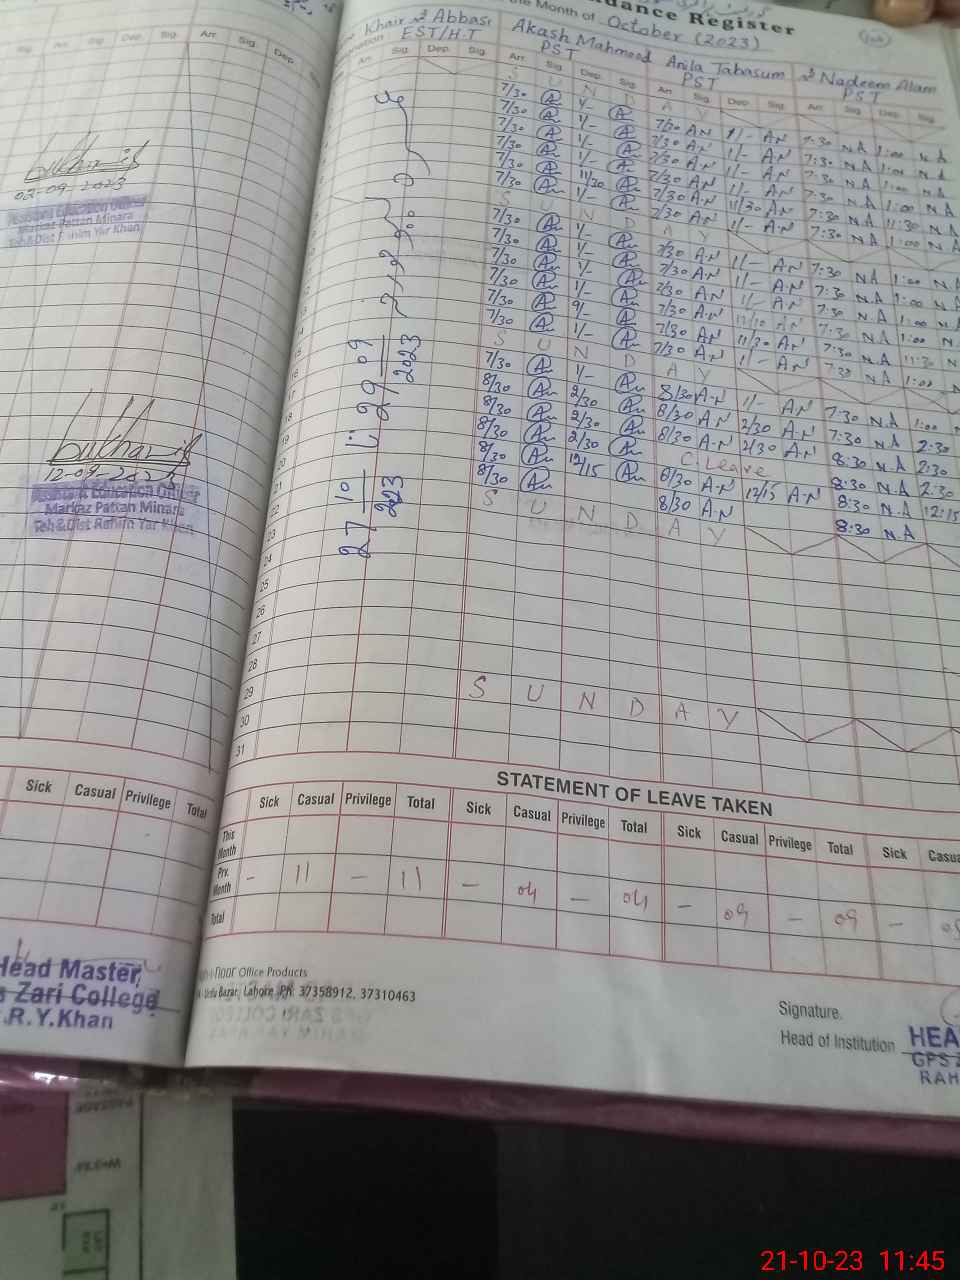 the Month of October (2023)
dance Register
Khair Abbasi
EST/H.T
Akash Mahmood
PST
Anila Tabasum
PST
Nadeem Alam
PST
Sig. Arr. Sig. Dep. Sig. Arr. Sig. Dep.
Arr. Sig. Dep. Sig. Arr. Sig. Dep. Sig. Arr. Sig. Dep. Sig. Arr. Sig. Dep. Sig.
S U N D A Y
7/30 1/- 7/30 A.N 1/- A.N 7:30 N.A 1:00 N.A
7/30 1/- 7/30 A.N 1/- A.N 7:30 N.A 1:00 N.A
7/30 1/- 7/30 A.N 1/- A.N 7:30 N.A 1:00 N.A
7/30 1/- 7/30 A.N 1/- A.N 7:30 N.A 1:00 N.A
7/30 11/30 7/30 A.N 11/30 A.N 7:30 N.A 11:30 N.A
7/30 1/- 7/30 A.N 1/- A.N 7:30 N.A 1:00 N.A
S U N D A Y
7/30 1/- 7/30 A.N 1/- A.N 7:30 N.A 1:00 N.A
7/30 1/- 7/30 A.N 1/- A.N 7:30 N.A 1:00 N.A
7/30 1/- 7/30 A.N 1/- A.N 7:30 N.A 1:00 N.A
7/30 1/- 7/30 A.N A.N 7:30 N.A 1:00 N.A
7/30 9/- 7/30 A.N 11/30 A.N 7:30 N.A 11:30
7/30 1/- 7/30 A.N 1/- A.N 7:30 N.A 1:00
S U N D A Y
7/30 1/- 8/30 A.N 1/- A.N 7:30 N.A 1:00
8/30 2/30 8/30 A.N 2/30 A.N 7:30 N.A 2:30
8/30 2/30 8/30 A.N 2/30 A.N 8:30 N.A 2:30
8/30 2/30 C.Leave 8:30 N.A 2:30
8/30 12/15 8/30 A.N 12/15 A.N 8:30 N.A 12:15
8/30 8/30 A.N 8:30 N.A
S U N D A Y
09
2023
27 10
2023
15
16
17
18
19
20
21
22
23
24
25
26
27
28
29
S U N D A Y
30
31
02-09-2023
Assistant Education Officer
Markaz Pattan Minara
Teh & Dist Rahim Yar Khan
12-09-2023
Assistant Education Officer
Markaz Pattan Minara
Teh & Dist Rahim Yar Khan
Sick Casual Privilege Total
STATEMENT OF LEAVE TAKEN
Sick Casual Privilege Total Sick Casual Privilege Total Sick Casual Privilege Total Sick Casua
This Month
Prv. Month - 11 - 11 - 04 - 04 - 09 - 09 -
Total
Head Master,
Zari College
R.Y.Khan
noor Office Products
Urdu Bazar, Lahore. Ph: 37358912, 37310463
Signature.
Head of Institution
HEA
GPS
RAH
21-10-23 11:45